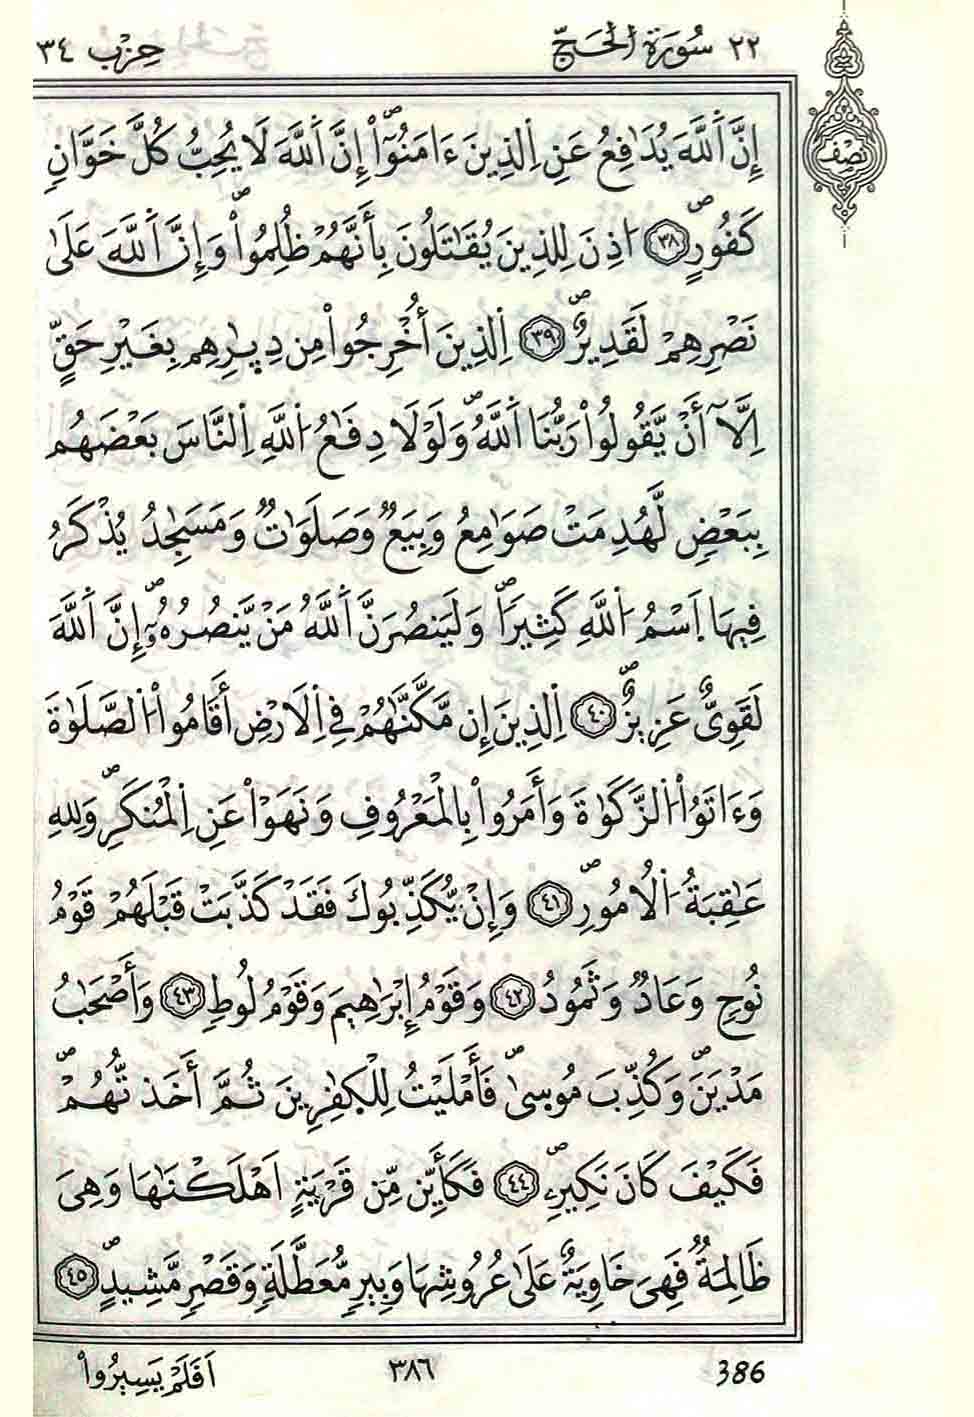 ٢٢ سُورَةُ الْحَجِّ حِزْب ٣٤
نصف
إِنَّ اَ۬للَّهَ يُدَٰفِعُ عَنِ اِ۬لذِينَ ءَامَنُوٓاْۖ إِنَّ اَ۬للَّهَ لَا يُحِبُّ كُلَّ خَوَّانٖ
كَفُورٍۖ ٣٨ ا۟ذِنَ لِلذِينَ يُقَٰتَلُونَ بِأَنَّهُمْ ظُلِمُواْۖ وَإِنَّ اَ۬للَّهَ عَلَىٰ
نَصْرِهِمْ لَقَدِيرٌۖ ٣٩ اِ۬لذِينَ أُخْرِجُواْ مِن دِيٰ۪رِهِم بِغَيْرِ حَقٍّ
اِلَّآ أَنْ يَّقُولُواْ رَبُّنَا اَ۬للَّهُۖ وَلَوْلَا دِفَٰعُ اُ۬للَّهِ اِ۬لنَّاسَ بَعْضَهُم
بِبَعْضٖ لَّهُدِمَتْ صَوَٰمِعُ وَبِيَعٞ وَصَلَوَٰتٞ وَمَسَٰجِدُ يُذْكَرُ
فِيهَا اَ۪سْمُ اُ۬للَّهِ كَثِيراٗۖ وَلَيَنصُرَنَّ اَ۬للَّهُ مَنْ يَّنصُرُهُۥٓۖ إِنَّ اَ۬للَّهَ
لَقَوِيٌّ عَزِيزٌۖ ٤٠ اِ۬لذِينَ إِن مَّكَّنَّٰهُمْ فِي اِ۬لَارْضِ أَقَامُواْ اُ۬لصَّلَوٰةَ
وَءَاتَوُاْ اُ۬لزَّكَوٰةَ وَأَمَرُواْ بِالْمَعْرُوفِ وَنَهَوْاْ عَنِ اِ۬لْمُنكَرِۖ وَلِلهِ
عَٰقِبَةُ اُ۬لُامُورِۖ ٤١ وَإِنْ يُّكَذِّبُوكَ فَقَدْ كَذَّبَتْ قَبْلَهُمْ قَوْمُ
نُوحٖ وَعَادٞ وَثَمُودُ ٤٢ وَقَوْمُ إِبْرَٰهِيمَ وَقَوْمُ لُوطٖ ٤٣ وَأَصْحَٰبُ
مَدْيَنَۖ وَكُذِّبَ مُوسَىٰۖ فَأَمْلَيْتُ لِلْكٰ۪فِرِينَ ثُمَّ أَخَذتُّهُمْۖ
فَكَيْفَ كَانَ نَكِيرِۦۖ ٤٤ فَكَأَيِّن مِّن قَرْيَةٍ اَهْلَكْنَٰهَا وَهِيَ
ظَالِمَةٞ فَهِيَ خَاوِيَةٌ عَلَىٰ عُرُوشِهَا وَبِيرٖ مُّعَطَّلَةٖ وَقَصْرٖ مَّشِيدٍۖ ٤٥
386 ٣٨٦ اَفَلَمْ يَسِيرُواْ